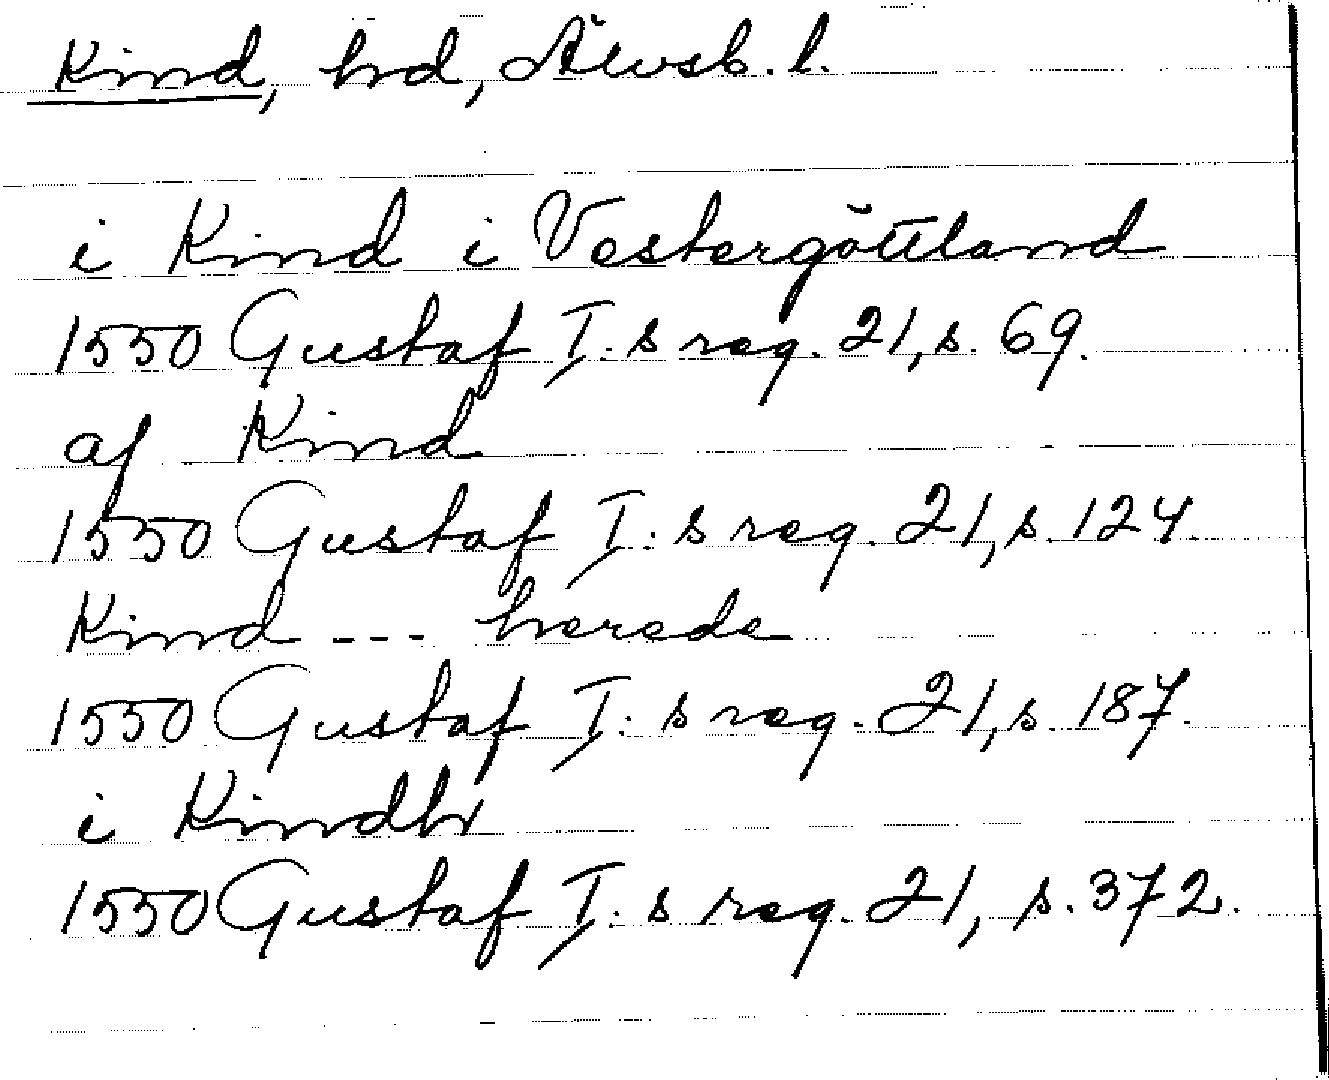 Kind, hd, Älvsb. l.
i Kind i Vestergöttland
1550 Gustaf I:s reg. 21, s. 69.
af Kind
1550 Gustaf I:s reg. 21, s. 124.
Kind --- herede
1550 Gustaf I:s reg. 21, s. 187.
i Kindh
1550 Gustaf I:s reg. 21, s. 372.